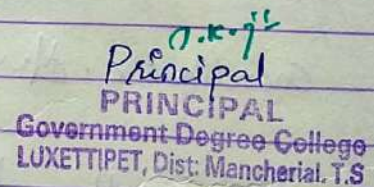 Principal
PRINCIPAL
Government Degree College
LUXETTIPET, Dist: Mancherial. T.S